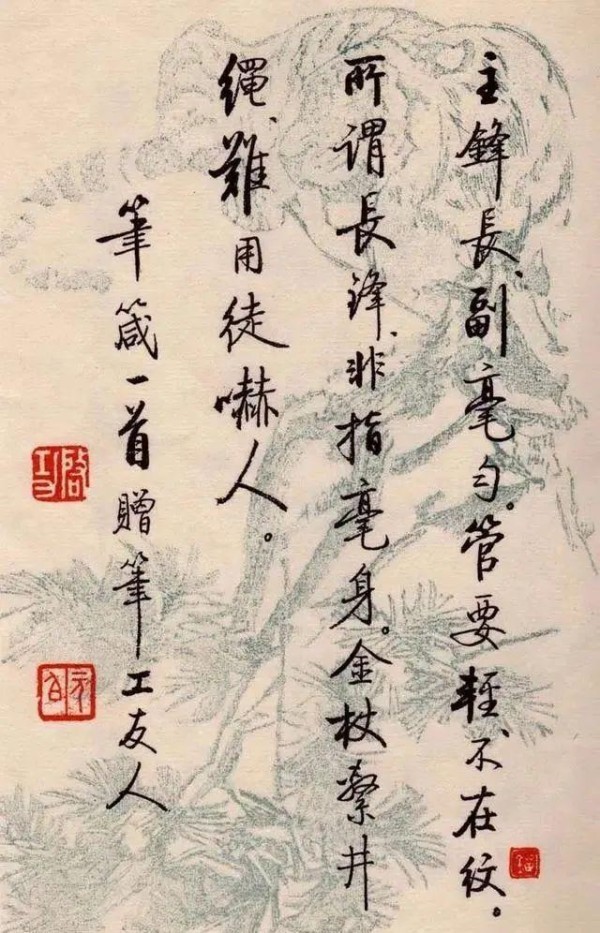 主鋒長、副毫勻。管要輕、不在紋。
所謂長鋒、非指毫身。金杖繫井
繩、難用徒嚇人。
筆箴一首贈筆工友人
啓功
元白